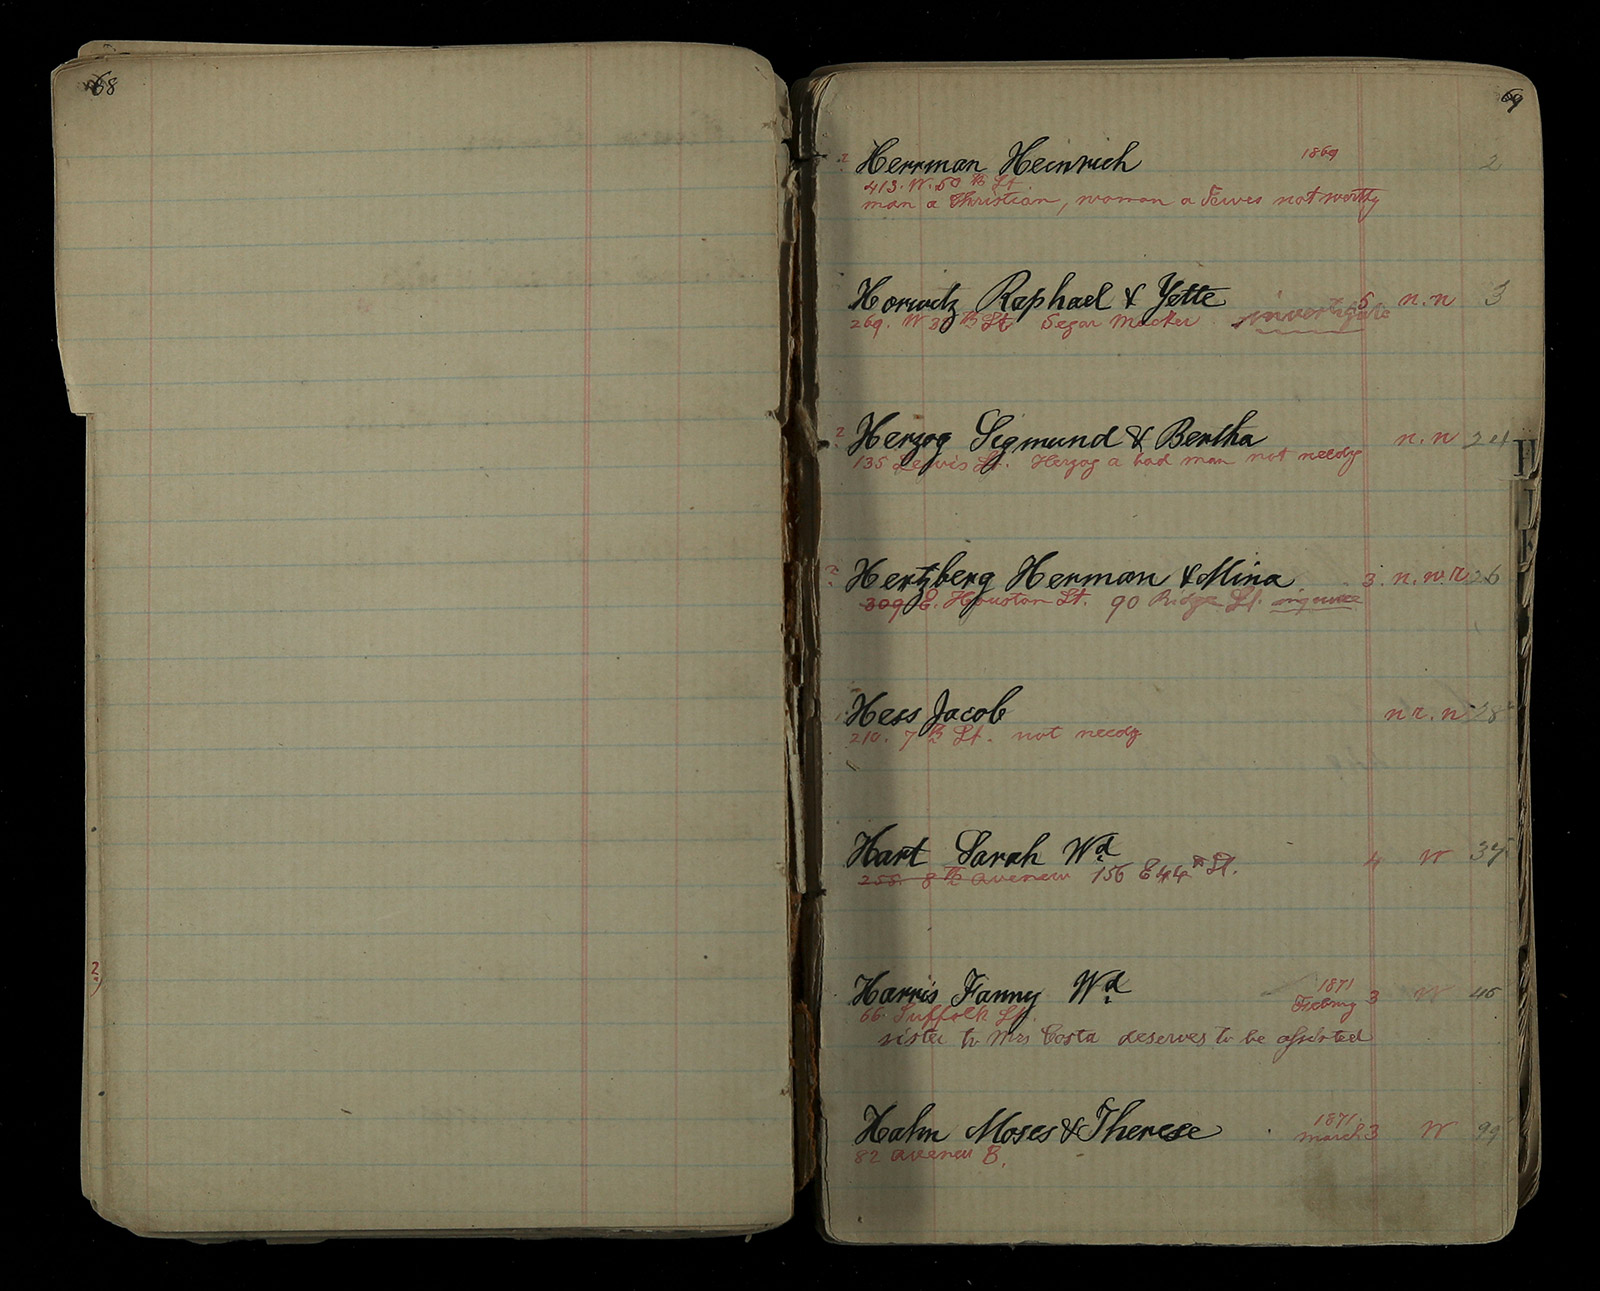 68
69
Herrman Heinrich 1869 2
413. W. 50 th St
man a Christian, woman a Jewes not worthy
Horwitz Raphael & Yette 5 n.n 3
269. W 39 th St Segar Macker investigate
Herzog Sigmund & Bertha n.n 24
135 Lewis St. Herzog a bad man not needy
Hertzberg Herman & Mina 3. n.w.r 26
309 E. Houston St. 90 Ridge St.
Hess Jacob n r. n 28
210. 7 th St. not needy
Hart Sarah Wd 4 W 34
258. 8 th Avenew 156 E 44 th St.
Harris Fanny Wd 1871 Februry 3 W 45
66. Suffolk St.
sister to Mrs Costa deserves to be assisted
Hahn Moses & Therese 1871 March 3 W 99
82 Avenew B,